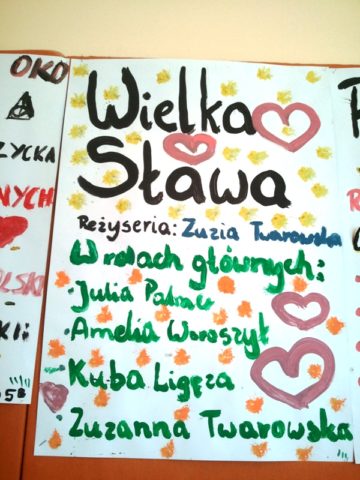 OKO
ZYCKA
NYCH
OLSKI
KI:
5B
Wielka
Sława
Reżyseria: Zuzia Twarowska
W rolach głównych:
Julia
Amelia Woroszył
Kuba Ligęza
Zuzanna Twarowska